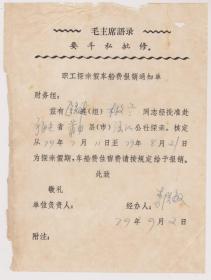 毛主席語录
要斗私批修。
职工探亲假车船费报销通知单
财务组：
兹有 组 同志经批准赴
省 县(市) 公社探亲。核定
从79年7月11日至79年8月21日
为探亲假期，车船费住宿费请按规定给予报销。
此致
敬礼
单位负责人： 经办人：
79年9月2日
附注：